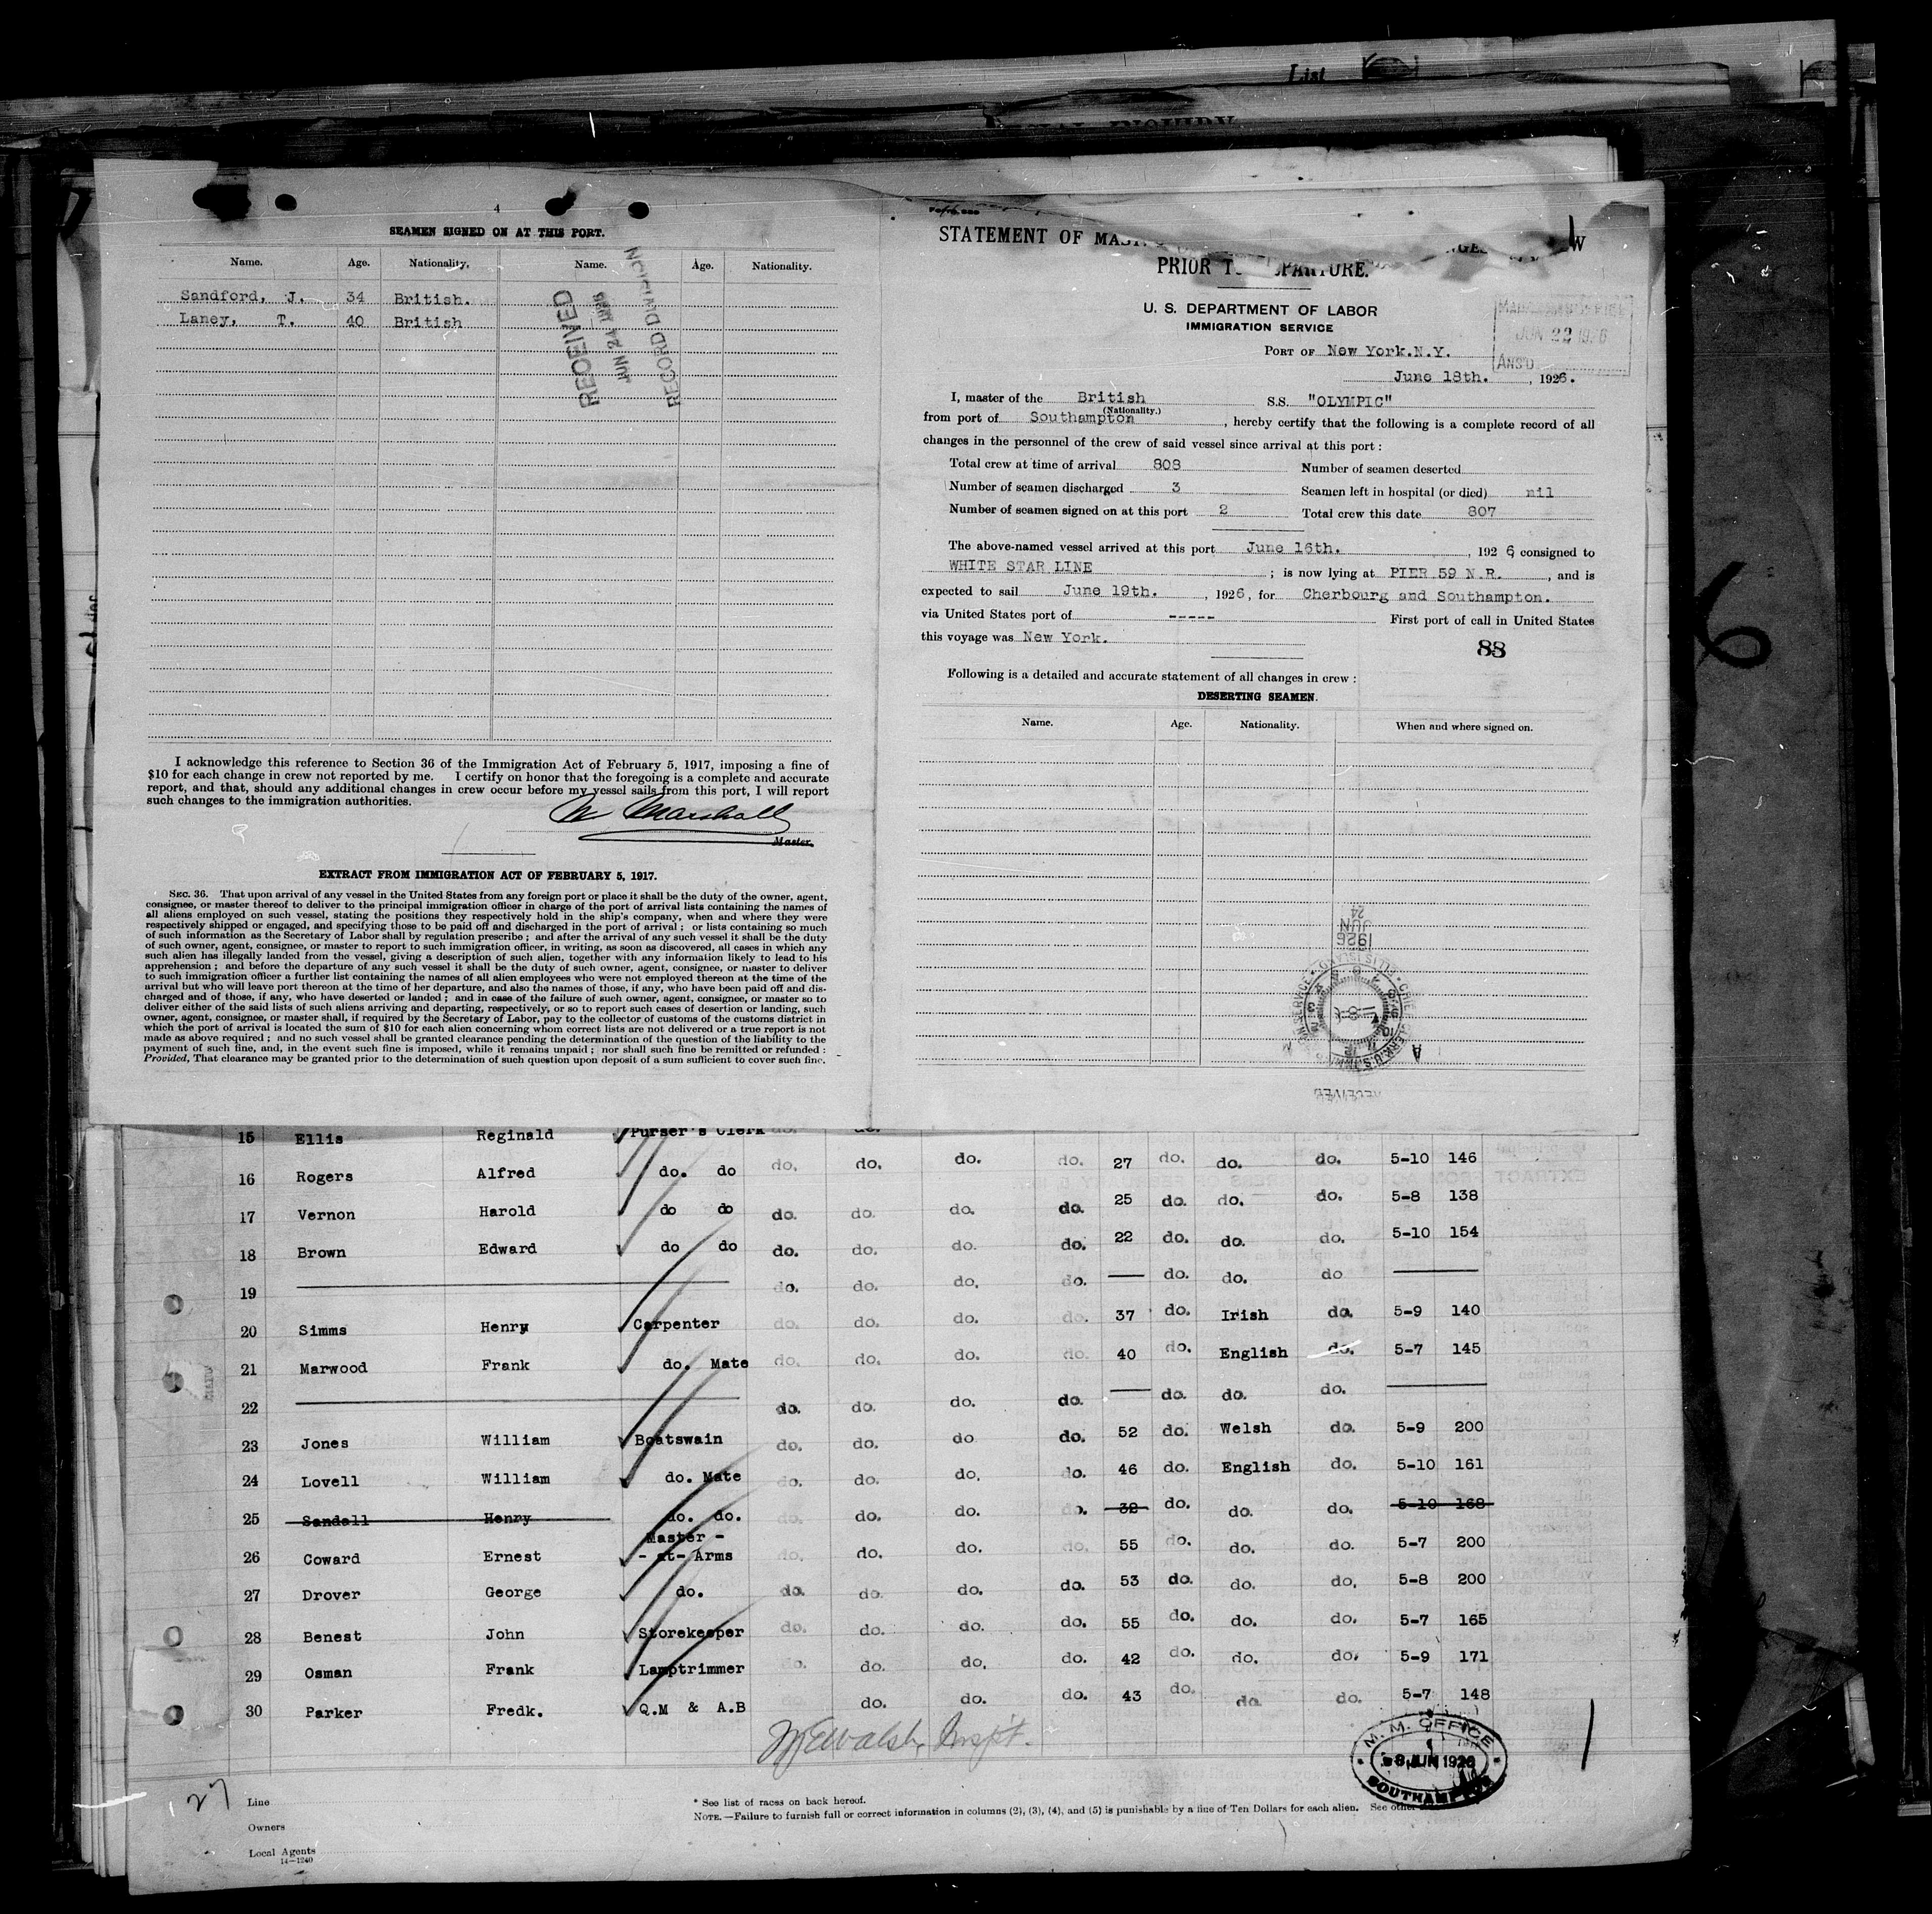 List
4
SEAMEN SIGNED ON AT THIS PORT.
Name. Age. Nationality. Name. Age. Nationality.
Sandford, J. 34 British.
Laney, T. 40 British
RECEIVED
JUN 24 1926
RECORD DIVISION
I acknowledge this reference to Section 36 of the Immigration Act of February 5, 1917, imposing a fine of
$10 for each change in crew not reported by me. I certify on honor that the foregoing is a complete and accurate
report, and that, should any additional changes in crew occur before my vessel sails from this port, I will report
such changes to the immigration authorities.
W Marshall
Master.
EXTRACT FROM IMMIGRATION ACT OF FEBRUARY 5, 1917.
SEC. 36. That upon arrival of any vessel in the United States from any foreign port or place it shall be the duty of the owner, agent,
consignee, or master thereof to deliver to the principal immigration officer in charge of the port of arrival lists containing the names of
all aliens employed on such vessel, stating the positions they respectively hold in the ship's company, when and where they were
respectively shipped or engaged, and specifying those to be paid off and discharged in the port of arrival; or lists containing so much
of such information as the Secretary of Labor shall by regulation prescribe; and after the arrival of any such vessel it shall be the duty
of such owner, agent, consignee, or master to report to such immigration officer, in writing, as soon as discovered, all cases in which any
such alien has illegally landed from the vessel, giving a description of such alien, together with any information likely to lead to his
apprehension; and before the departure of any such vessel it shall be the duty of such owner, agent, consignee, or master to deliver
to such immigration officer a further list containing the names of all alien employees who were not employed thereon at the time of the
arrival but who will leave port thereon at the time of her departure, and also the names of those, if any, who have been paid off and dis-
charged and of those, if any, who have deserted or landed; and in case of the failure of such owner, agent, consignee, or master so to
deliver either of the said lists of such aliens arriving and departing, respectively, or so to report such cases of desertion or landing, such
owner, agent, consignee, or master shall, if required by the Secretary of Labor, pay to the collector of customs of the customs district in
which the port of arrival is located the sum of $10 for each alien concerning whom correct lists are not delivered or a true report is not
made as above required; and no such vessel shall be granted clearance pending the determination of the question of the liability to the
payment of such fine, and, in the event such fine is imposed, while it remains unpaid; nor shall such fine be remitted or refunded:
Provided, That clearance may be granted prior to the determination of such question upon deposit of a sum sufficient to cover such fine.
STATEMENT OF
PRIOR
U. S. DEPARTMENT OF LABOR
IMMIGRATION SERVICE
JUN 22 1926
ANS'D
PORT OF New York.N.Y.
June 18th. , 1926.
I, master of the British S.S. "OLYMPIC"
(Nationality.)
from port of Southampton , hereby certify that the following is a complete record of all
changes in the personnel of the crew of said vessel since arrival at this port:
Total crew at time of arrival 808 Number of seamen deserted
Number of seamen discharged 3 Seamen left in hospital (or died) nil
Number of seamen signed on at this port 2 Total crew this date 807
The above-named vessel arrived at this port June 16th. , 1926 consigned to
WHITE STAR LINE ; is now lying at PIER 59 N.R. , and is
expected to sail June 19th. , 1926, for Cherbourg and Southampton.
via United States port of ----- First port of call in United States
this voyage was New York.
88
Following is a detailed and accurate statement of all changes in crew:
DESERTING SEAMEN.
Name. Age. Nationality. When and where signed on.
24
JUN
1926
RECEIVED
6
15 Ellis Reginald Purser's Clerk do. do.
16 Rogers Alfred do. do do. do. do. do. 27 do. do. do. 5-10 146
17 Vernon Harold do do do. do. do. do. 25 do. do. do. 5-8 138
18 Brown Edward do do do. do. do. do. 22 do. do. do. 5-10 154
19 do. do. do. do. — do. do. do —
20 Simms Henry Carpenter do. do. do. do. 37 do. Irish do. 5-9 140
21 Marwood Frank do. Mate do. do. do. do. 40 do. English do. 5-7 145
22 do. do. do. do. — do. do. do. —
23 Jones William Boatswain do. do. do do. 52 do. Welsh do. 5-9 200
24 Lovell William do. Mate do. do. do. do. 46 do. English do. 5-10 161
25 Sandell Henry do. do. do. do. do. do. 38 do. do. do. 5-10 168
26 Coward Ernest Master -
- at- Arms do. do. do. do. 55 do. do. do. 5-7 200
27 Drover George do. do. do. do. do. 53 do. do. do. 5-8 200
28 Benest John Storekeeper do. do. do. do. 55 do. do. do. 5-7 165
29 Osman Frank Lamptrimmer do. do. do. do. 42 do. do. do. 5-9 171
30 Parker Fredk. Q.M & A.B do. do. do. 43 do. do. do. 5-7 148
Walsh, Inspt.
M. M. OFFICE
8 JUN 1926
SOUTHAMPTON
27
Line
Owners
Local Agents
14—1240
* See list of races on back hereof.
NOTE.—Failure to furnish full or correct information in columns (2), (3), (4), and (5) is punishable by a fine of Ten Dollars for each alien. See other